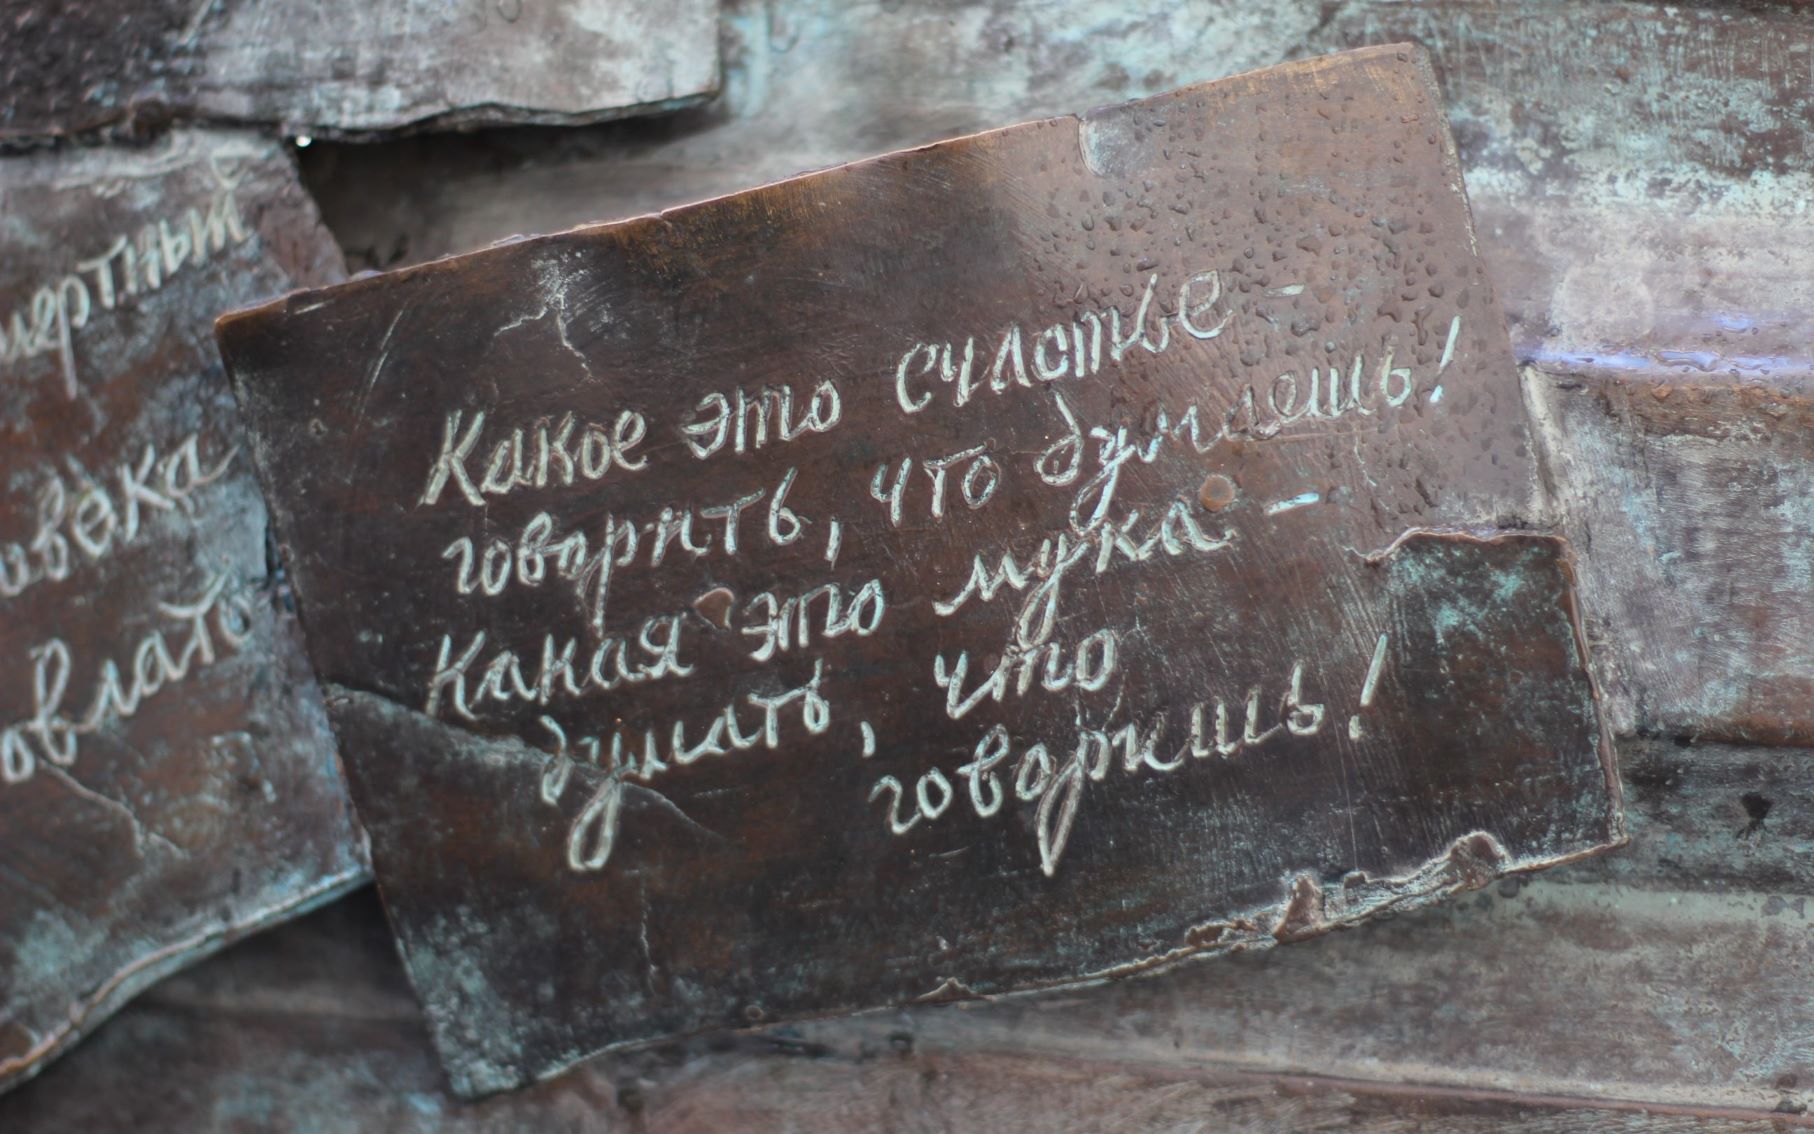 Какое это счастье –
говорить, что думаешь!
Какая это мука –
думать, что
говоришь!